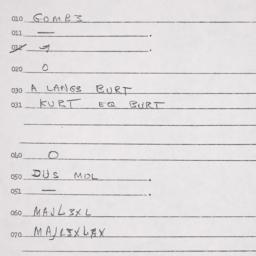 010 GOMB3
011 —
012
020 0
030 A LANGS BURT
031 KURT EQ BURT
060 0
050 DUS MOL
051 —
060 MAJL3XL
070